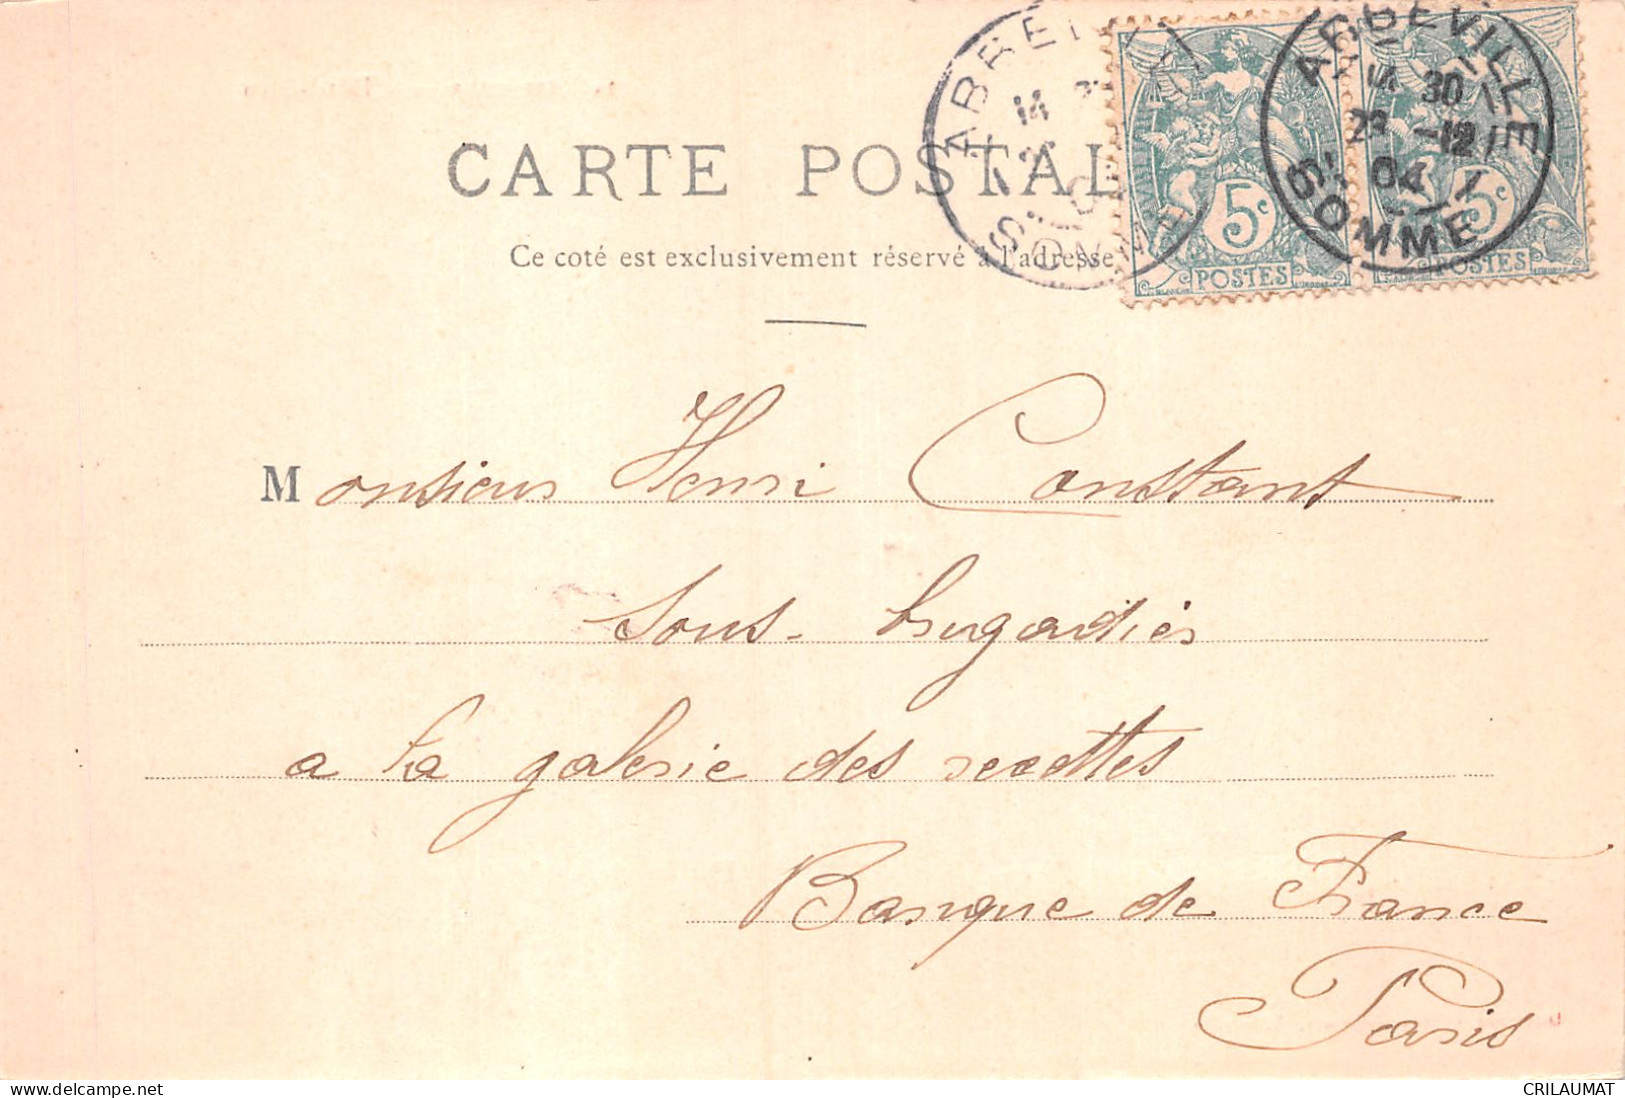 CARTE POSTAL
Ce coté est exclusivement réservé à l'adresse
ABBEVILLE
14 30
23 -12
04
SOMME
5c
POSTES
5c
POSTES
Monsieur Henri Constant
Sous-brigadier
a la galerie des recettes
Banque de France
Paris
CRILAUMAT